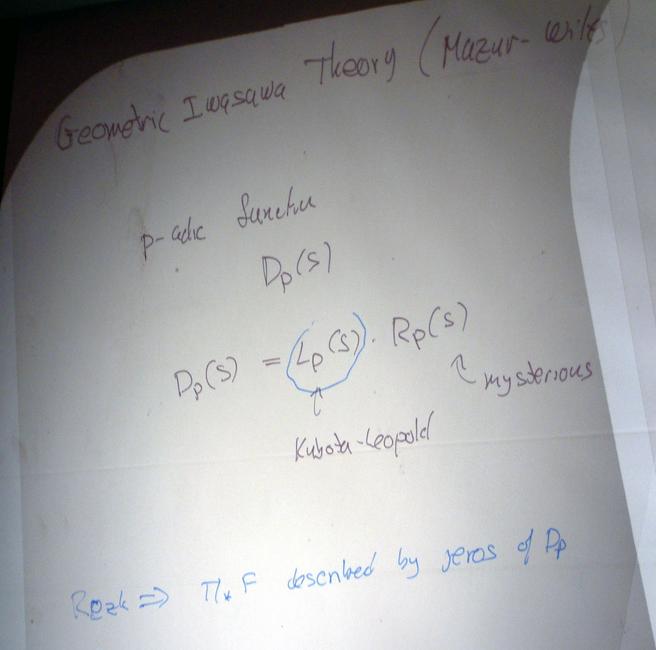 Geometric Iwasawa Theory (Mazur-Wiles)
p-adic function
Dp(s)
Dp(s) = Lp(s) · Rp(s)
↑ ↖ mysterious
Kubota-Leopold
Rezk ⇒ π* F described by zeros of Dp